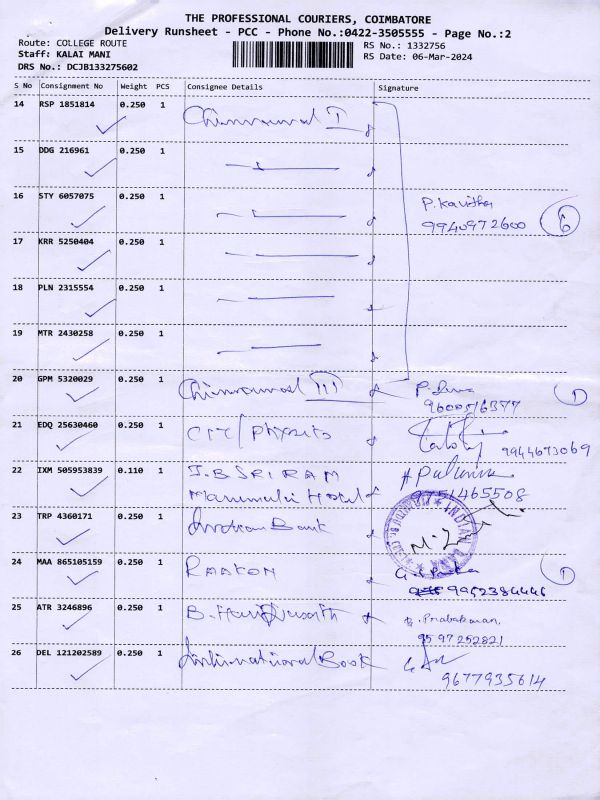 THE PROFESSIONAL COURIERS, COIMBATORE
Delivery Runsheet - PCC - Phone No.:0422-3505555 - Page No.:2
Route: COLLEGE ROUTE
RS No.: 1332756
Staff: KALAI MANI
RS Date: 06-Mar-2024
DRS No.: DCJB133275602
S No Consignment No Weight PCS Consignee Details Signature
14 RSP 1851814 0.250 1
15 DDG 216961 0.250 1
16 STY 6057075 0.250 1
P. Kavitha
9940972600 6
17 KRR 5250404 0.250 1
18 PLN 2315554 0.250 1
19 MTR 2430258 0.250 1
20 GPM 5320029 0.250 1 III 1
9600516377
21 EDQ 25630460 0.250 1 CIT/
9944673069
22 IXM 505953839 0.110 1 J.B SRIRAM
Hostel 9751465508
23 TRP 4360171 0.250 1 Indian Bank
INDIAN BANK
24 MAA 865105159 0.250 1 1
9952384446
25 ATR 3246896 0.250 1 B. Prabakaran,
9597252821
26 DEL 121202589 0.250 1 International Book
9677935614